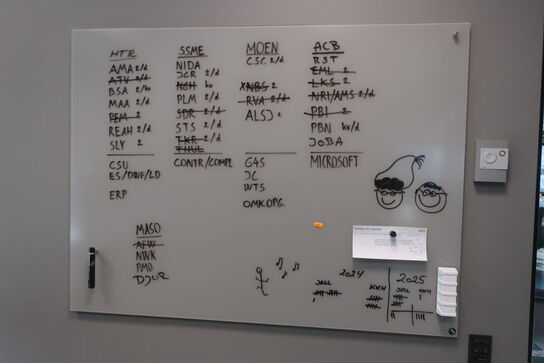 HTR
AMA 2/d
ATV 2/d
BSA 2/kv
MAA 2/d
PEM 2
REAH 2/d
SLY 2
CSU
ES/DWF/LD
ERP
SSME
NIDA
JCR 2/d
NGH kv
PLM 2/d
SDR 2/d
STS 2/d
TKR 2/d
THUL
CONTR/COMPL
MOEN
CSC 2/d
XNBS 2
RVA 2/d
ALSJ 2
G4S
JC
WTS
OMK.OPG.
ACB
RST
EML 2
LKS 2
NRI/AMS 2/d
PBI 2
PBN kv/d
JOBA
MICROSOFT
MASO
AFW
NWK
PMO
DJUR
2024
KKH
2025